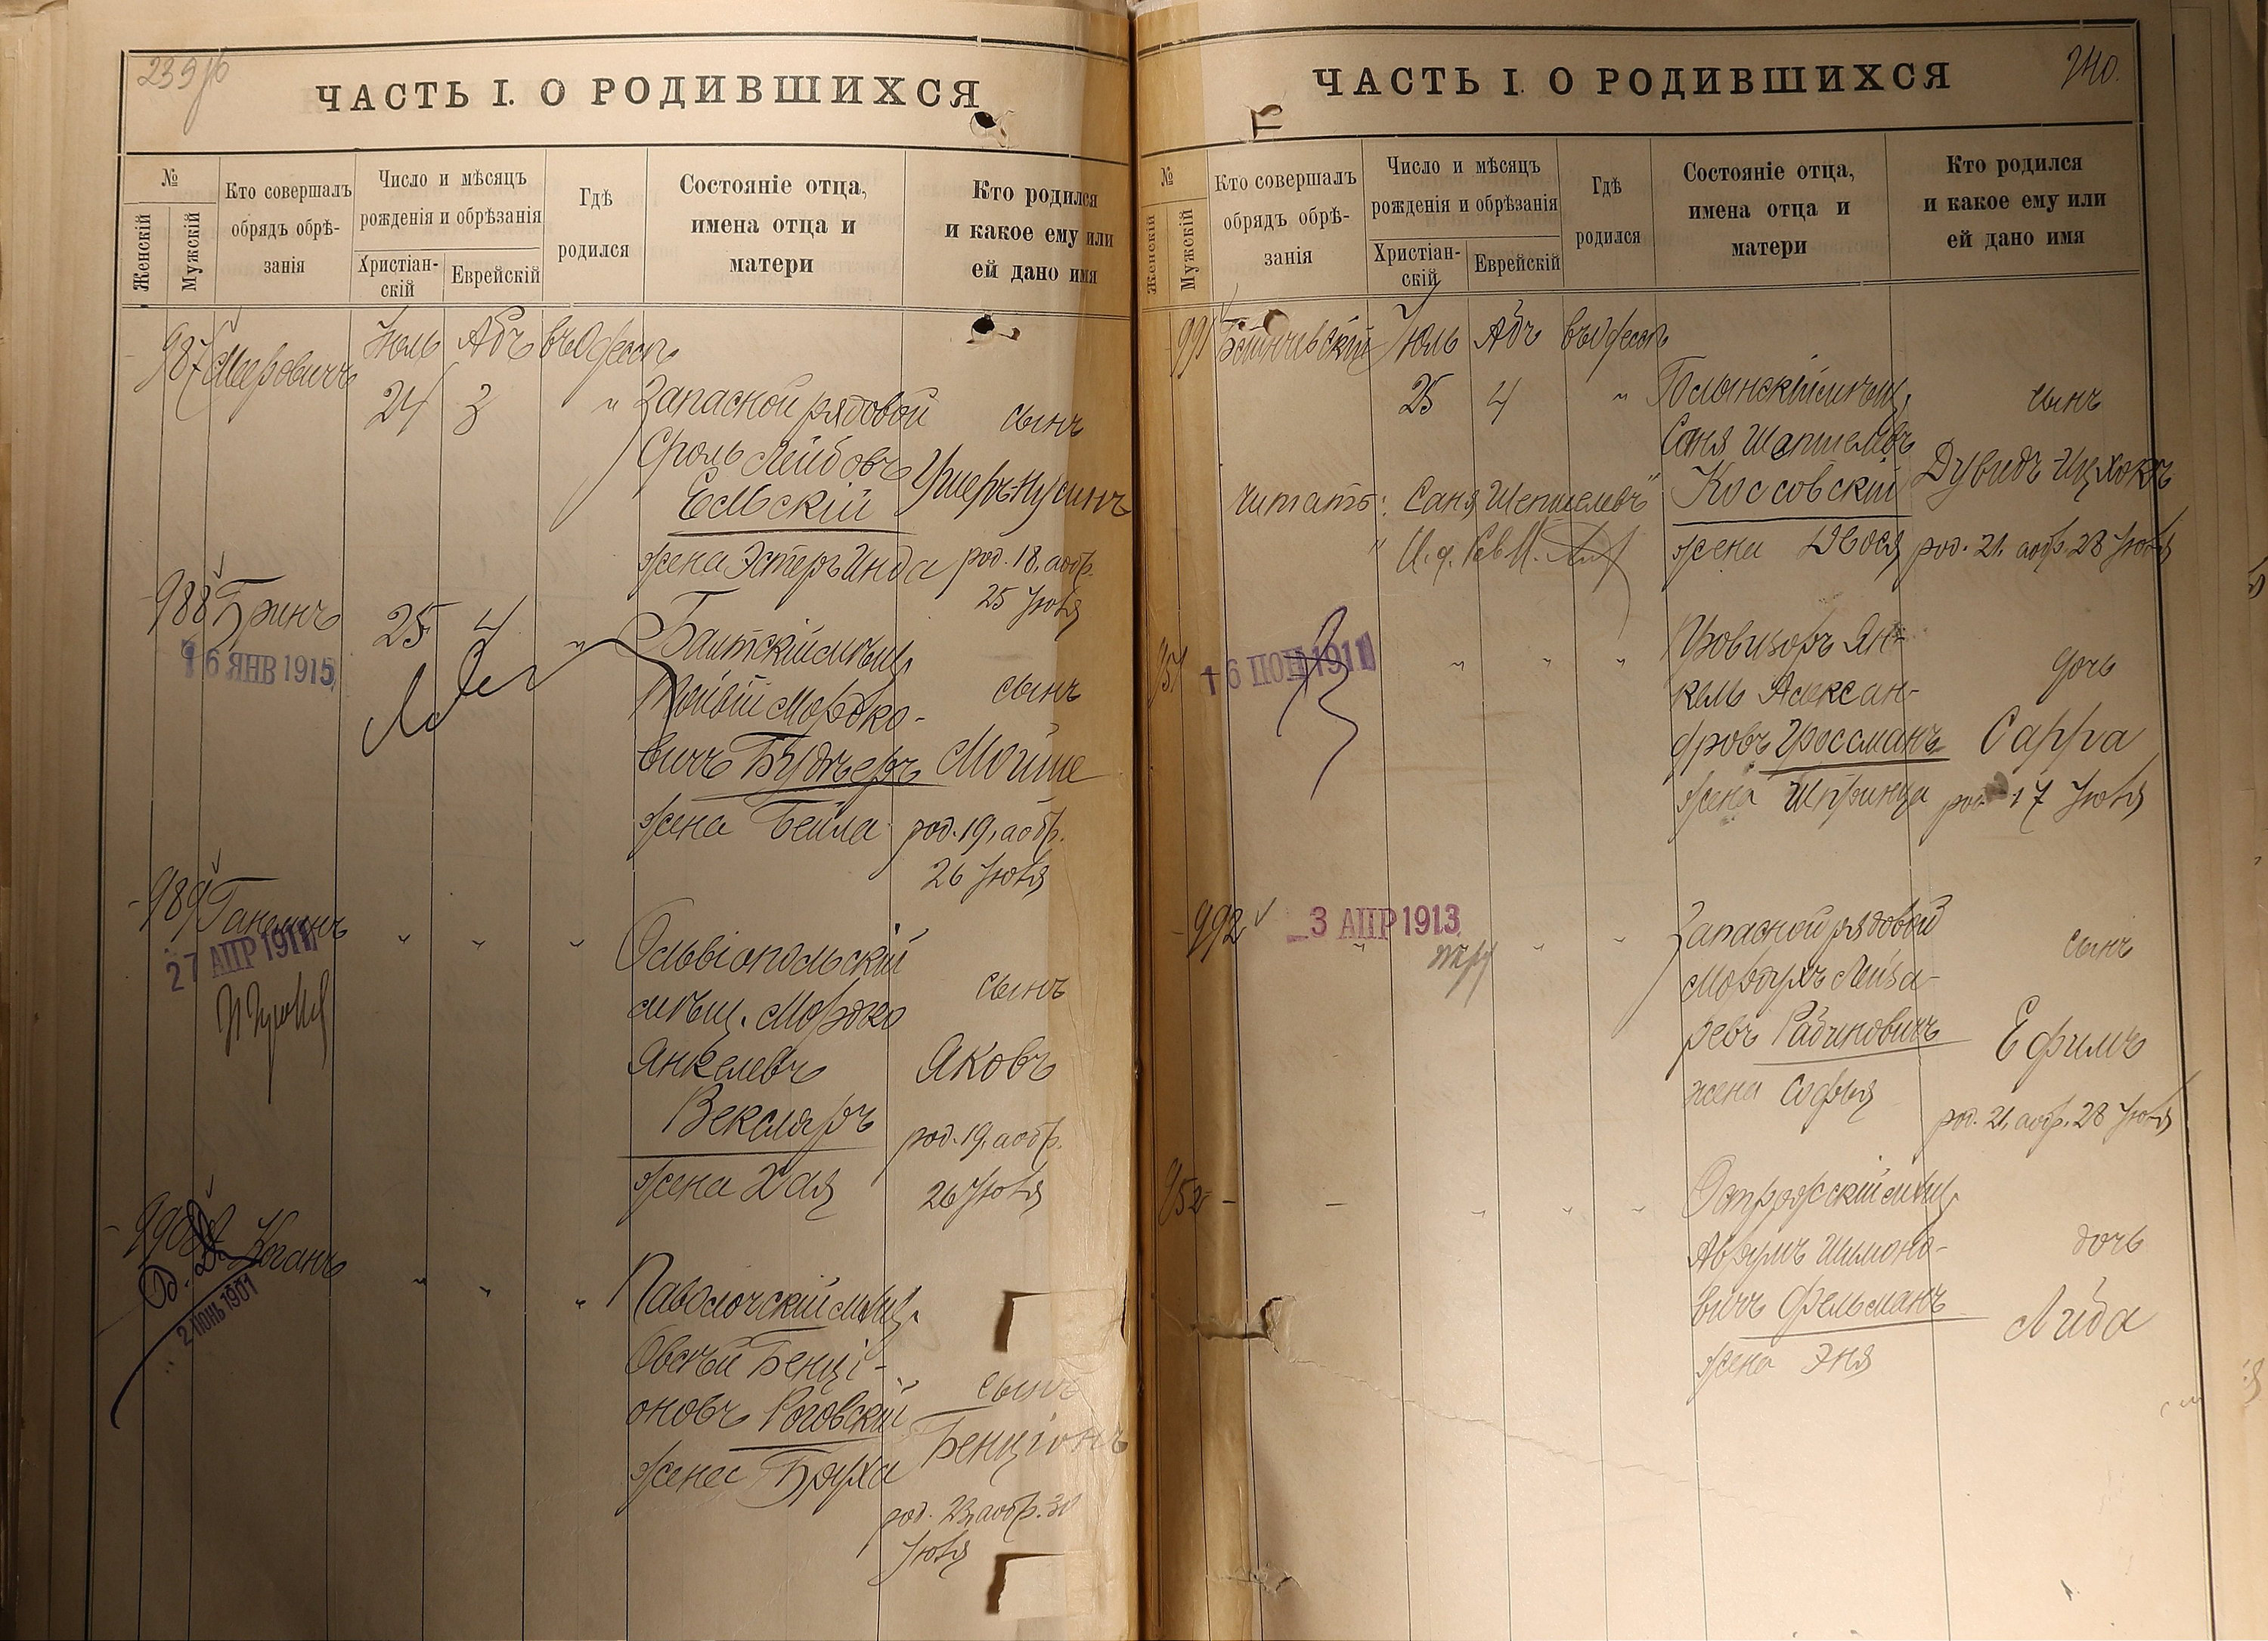 ЧАСТЬ I. О РОДИВШИХСЯ
№
Женскій
Мужскій
Кто совершалъ
обрядъ обрѣ-
занія
Число и мѣсяцъ
рожденія и обрѣзанія
Христіан-
скій
Еврейскій
Гдѣ
родился
Состояніе отца,
имена отца и
матери
Кто родился
и какое ему или
ей дано имя
987 Мееровичъ
Іюль Абъ въ Одессѣ
24 3 "
Запасной рядовой
Сроль Лейбовъ
Ельскій
жена Эстеръ Инда
сынъ
Ушеръ-Нусинъ
род. 18, а обр.
25 Іюля
988 Гринъ
16 ЯНВ 1915
25 4 "
Балтскій мѣщ.
Мордко-
вичъ
жена Бейла
сынъ
Мойше
род. 19, а обр.
26 Іюля
989
27 АПР 1911
" " "
Ольвіопольскій
мѣщ. Мордко
Янкелевъ
Векслеръ
жена Хая
сынъ
Яковъ
род. 19, а обр.
26 Іюля
990 Коганъ
2 ІЮНЬ 1901
" " "
Паволочскій мѣщ.
Овсѣй Бенці-
оновъ Роговскій
жена Бруха
сынъ
Бенціонъ
род. 23, а обр. 30
Іюля
240.
ЧАСТЬ I. О РОДИВШИХСЯ
№
Женскій
Мужскій
Кто совершалъ
обрядъ обрѣ-
занія
Число и мѣсяцъ
рожденія и обрѣзанія
Христіан-
скій
Еврейскій
Гдѣ
родился
Состояніе отца,
имена отца и
матери
Кто родился
и какое ему или
ей дано имя
991
Іюль Абъ въ Одессѣ
25 4 "
мѣщ.
Саня Шепшелевъ
Коссовскій
жена Двося
сынъ
Дувидъ-Ицхокъ
род. 21, а обр. 28 Іюля
читать: Саня Шепшелевъ"
951
16 1911
" " "
Провизоръ Ян-
кель Алексан-
дровъ Гроссманъ
жена Шпринца
дочь
Сарра
род. 17 Іюля
992
3 АПР 1913
" " "
Запасной рядовой
Мордухъ Лейза-
ревъ Рабиновичъ
жена Софья
сынъ
Ефимъ
род. 21, а обр. 28 Іюля
952 - -
" " "
Острожскій мѣщ.
Аврумъ Шимоно-
вичъ Фельсманъ
жена Эня
дочь